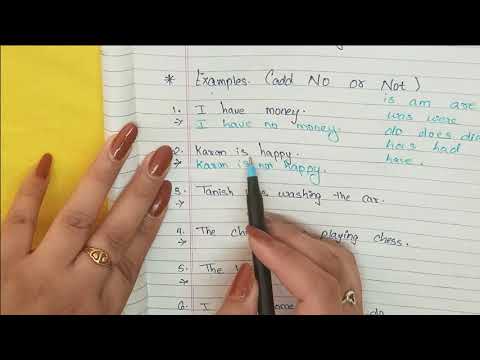 * Examples. (add No or Not)
is am are
1. I have money.
was were
→ I have no money.
do does did
2. Karan is happy.
has had
→ Karan is not happy.
have.
3. Tanish washing the car.
→
4. The playing chess.
→
5. The
→
6. I